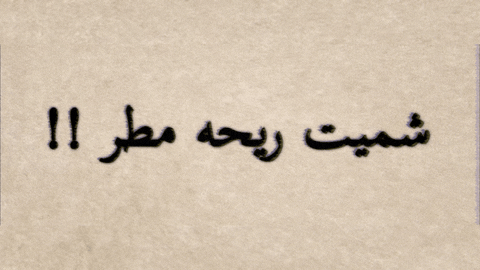 شميت ريحه مطر !!